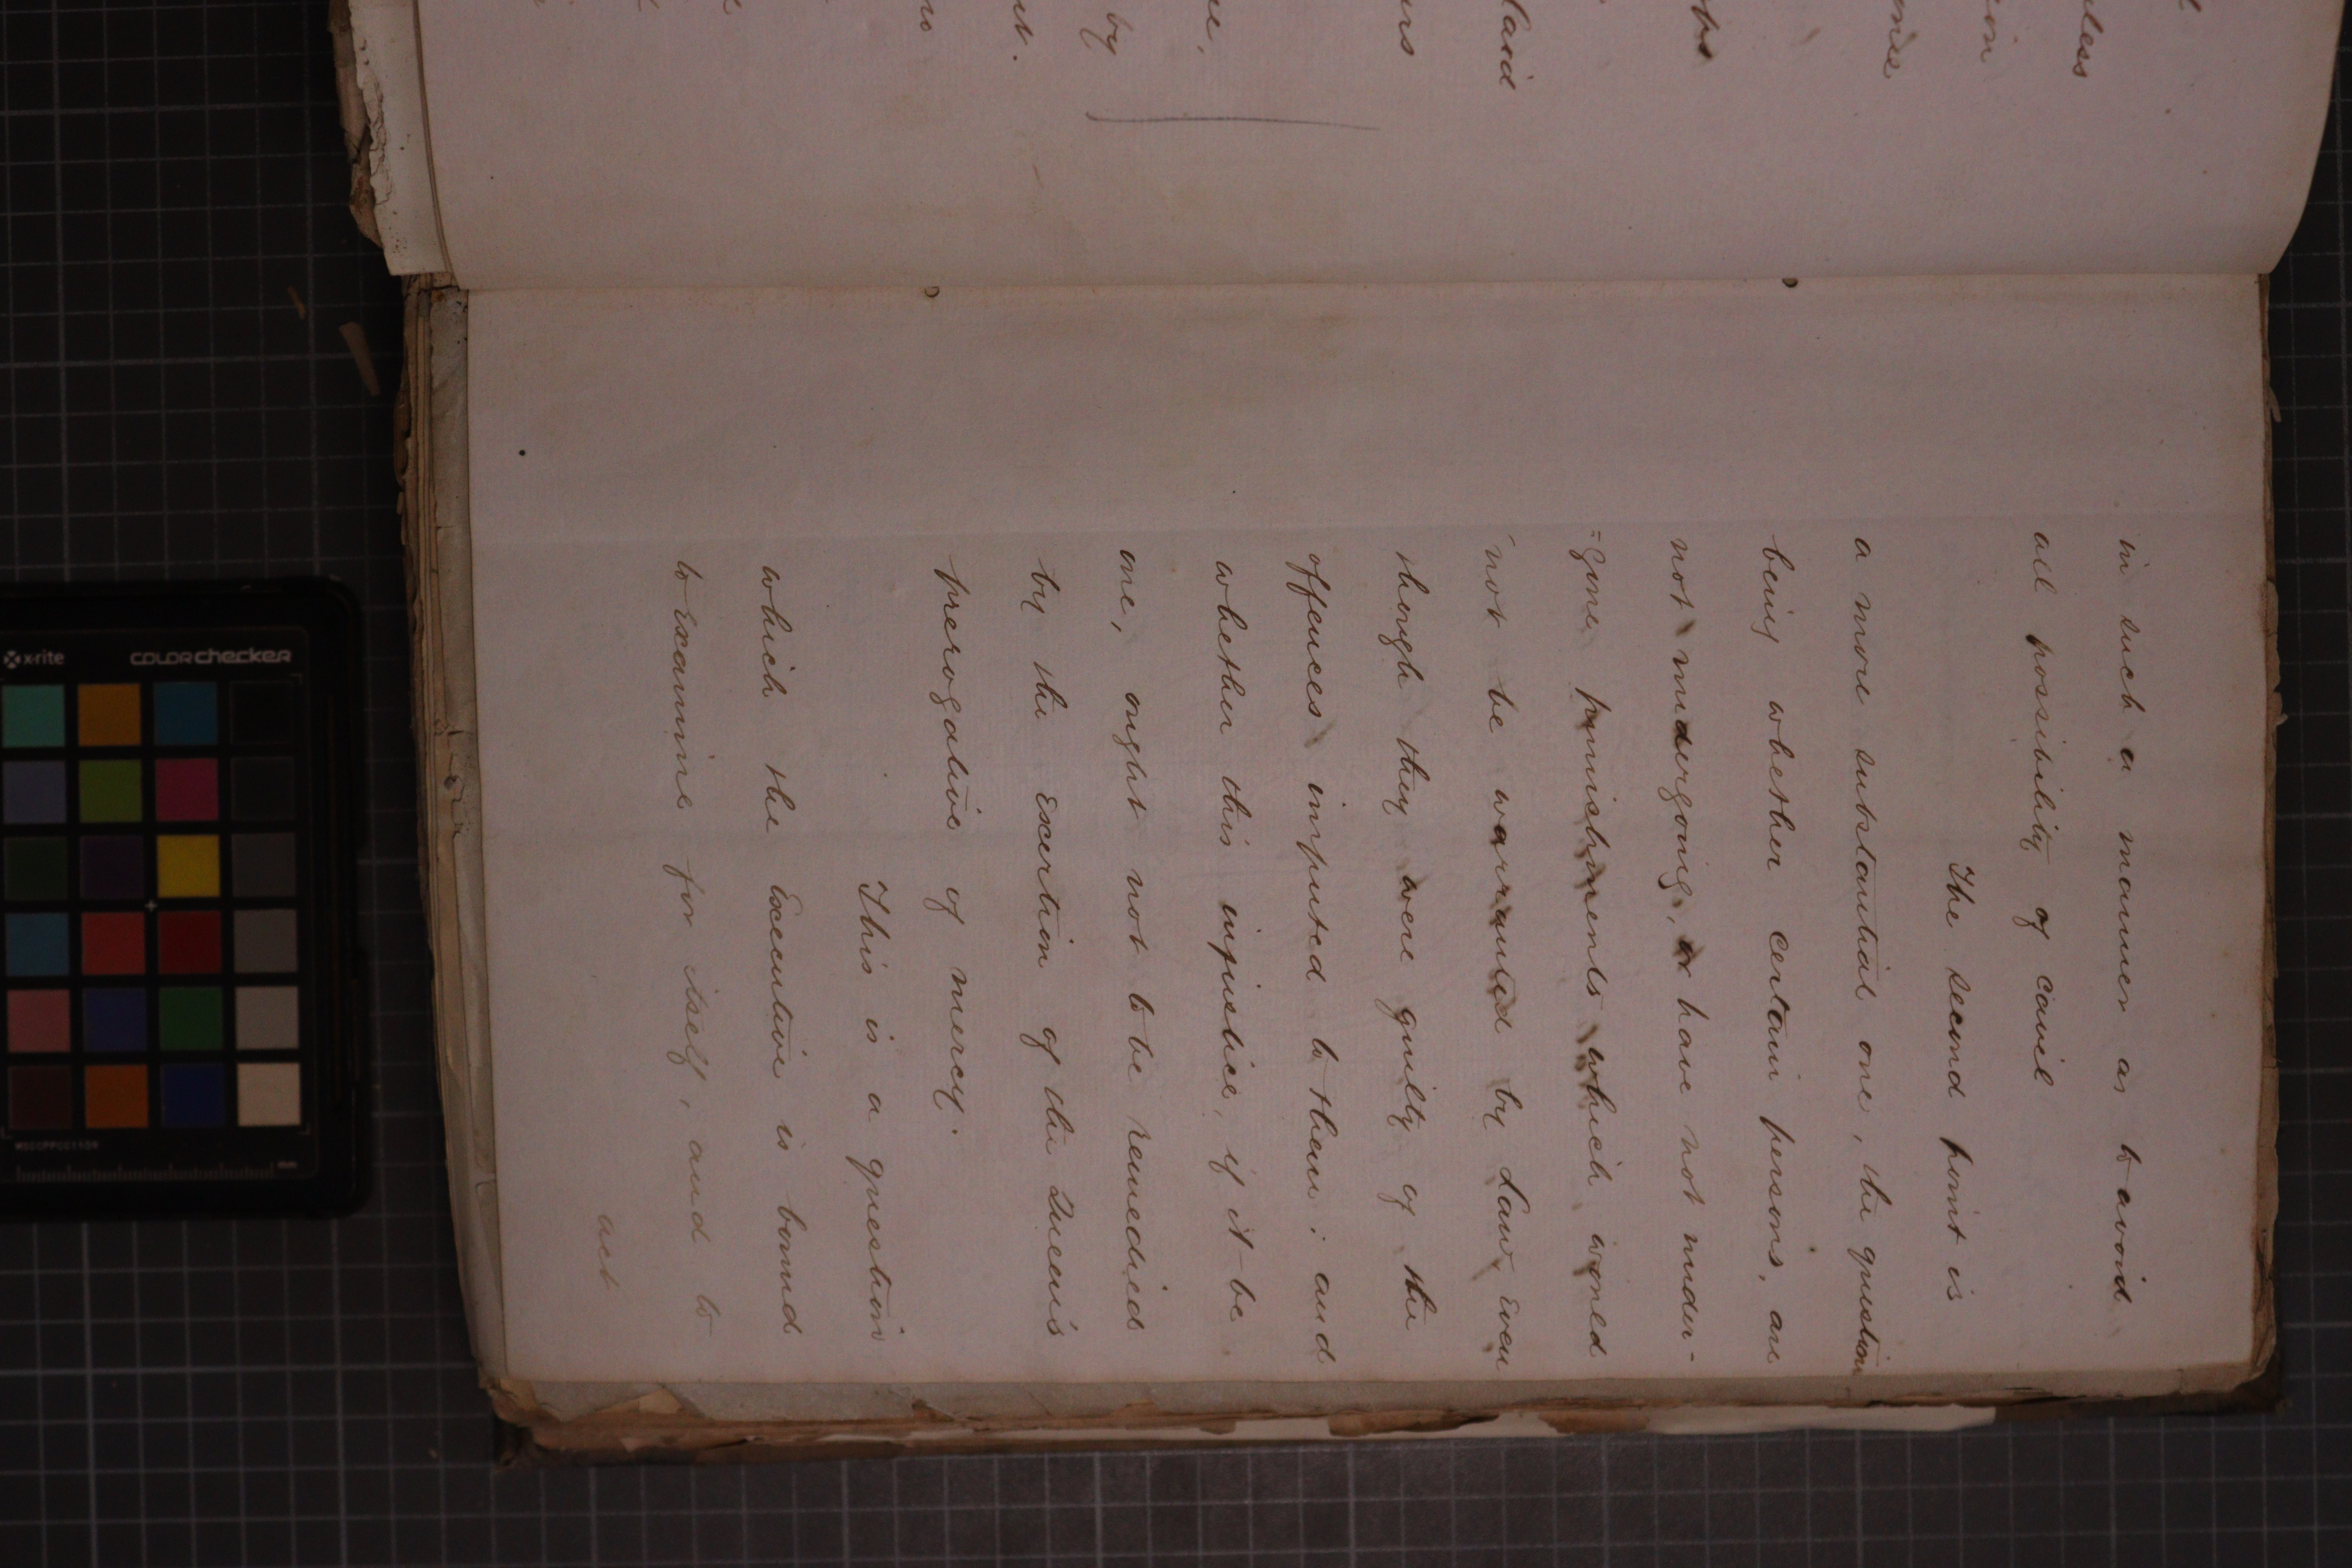 in such a manner as to avoid
all possibility of cavil
The second point is
a more substantial one, the question
being whether certain persons, are
not undergoing, or have not under-
=gone, punishments which would
not be warranted by Law, even
though they were guilty of the
offences imputed to them: and
whether this injustice, if it be
one, ought not to be remedied
by the exertion of the Queen's
prerogative of mercy.
This is a question
which the Executive is bound
to examine for itself, and to
act
laid
by
x-rite
colorchecker
mm